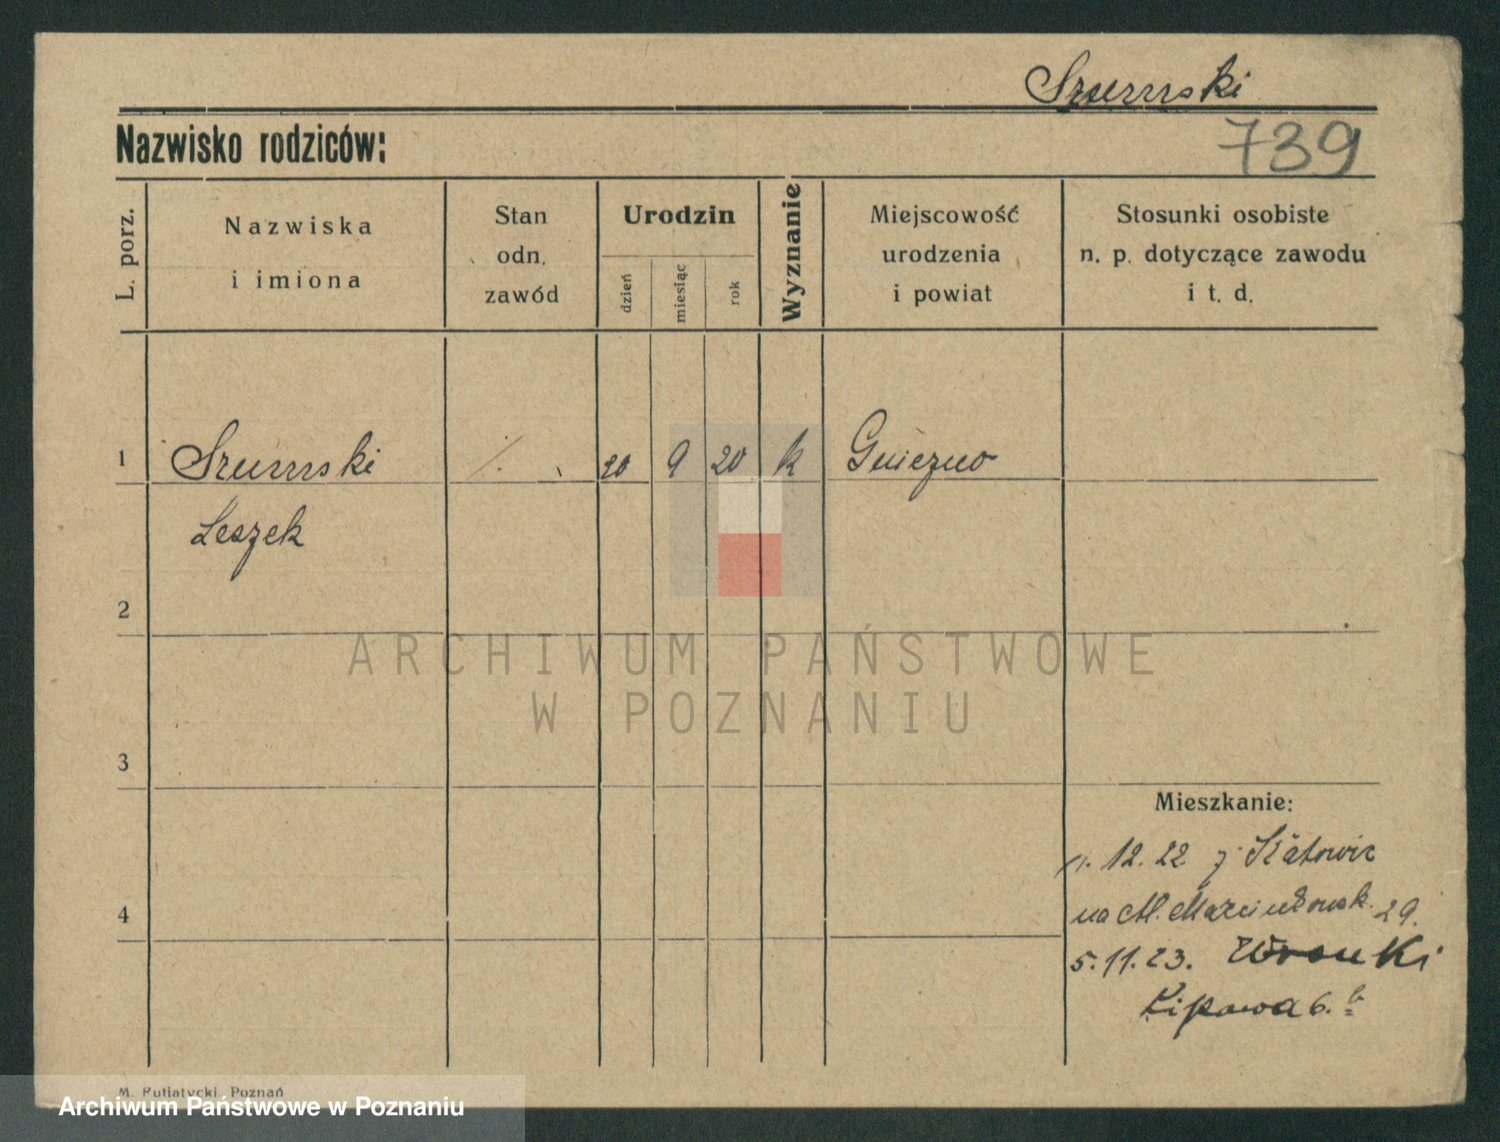 Szurmski
Nazwisko rodziców:
739
L. porz.
Nazwiska
i imiona
Stan
odn.
zawód
Urodzin
dzień
miesiąc
rok
Wyznanie
Miejscowość
urodzenia
i powiat
Stosunki osobiste
n. p. dotyczące zawodu
i t. d.
1
Szurmski
·/.
20
9
20
k
Gniezno
Leszek
2
ARCHIWUM PAŃSTWOWE
W POZNANIU
3
Mieszkanie:
12. 22 z Katowic
4
na M. Marcinkowsk. 29.
5. 11. 23. Wronki
Lipowa 6.
M. Putiatycki, Poznań
Archiwum Państwowe w Poznaniu